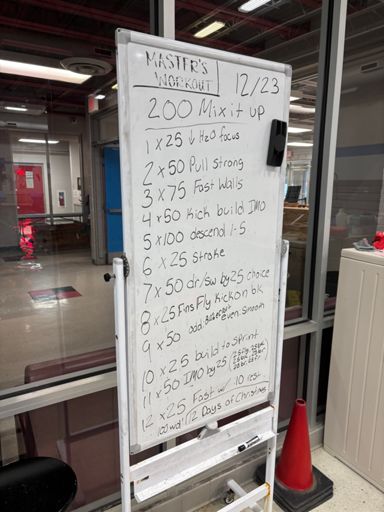 MASTER'S
WORKOUT
12/23
200 Mix it up
1 x 25 ↓ H2O focus
2 x 50 Pull strong
3 x 75 Fast Walls
4 x 50 Kick build IMO
5 x 100 descend 1-5
6 x 25 stroke
7 x 50 dr/sw by 25 choice
8 x 25 Fins Fly Kick on bk
9 x 50 odd even, smooth
10 x 25 build to sprint
11 x 50 IMO by 25
12 x 25 Fast w/ :10 rest
100 wd 12 Days of Christmas